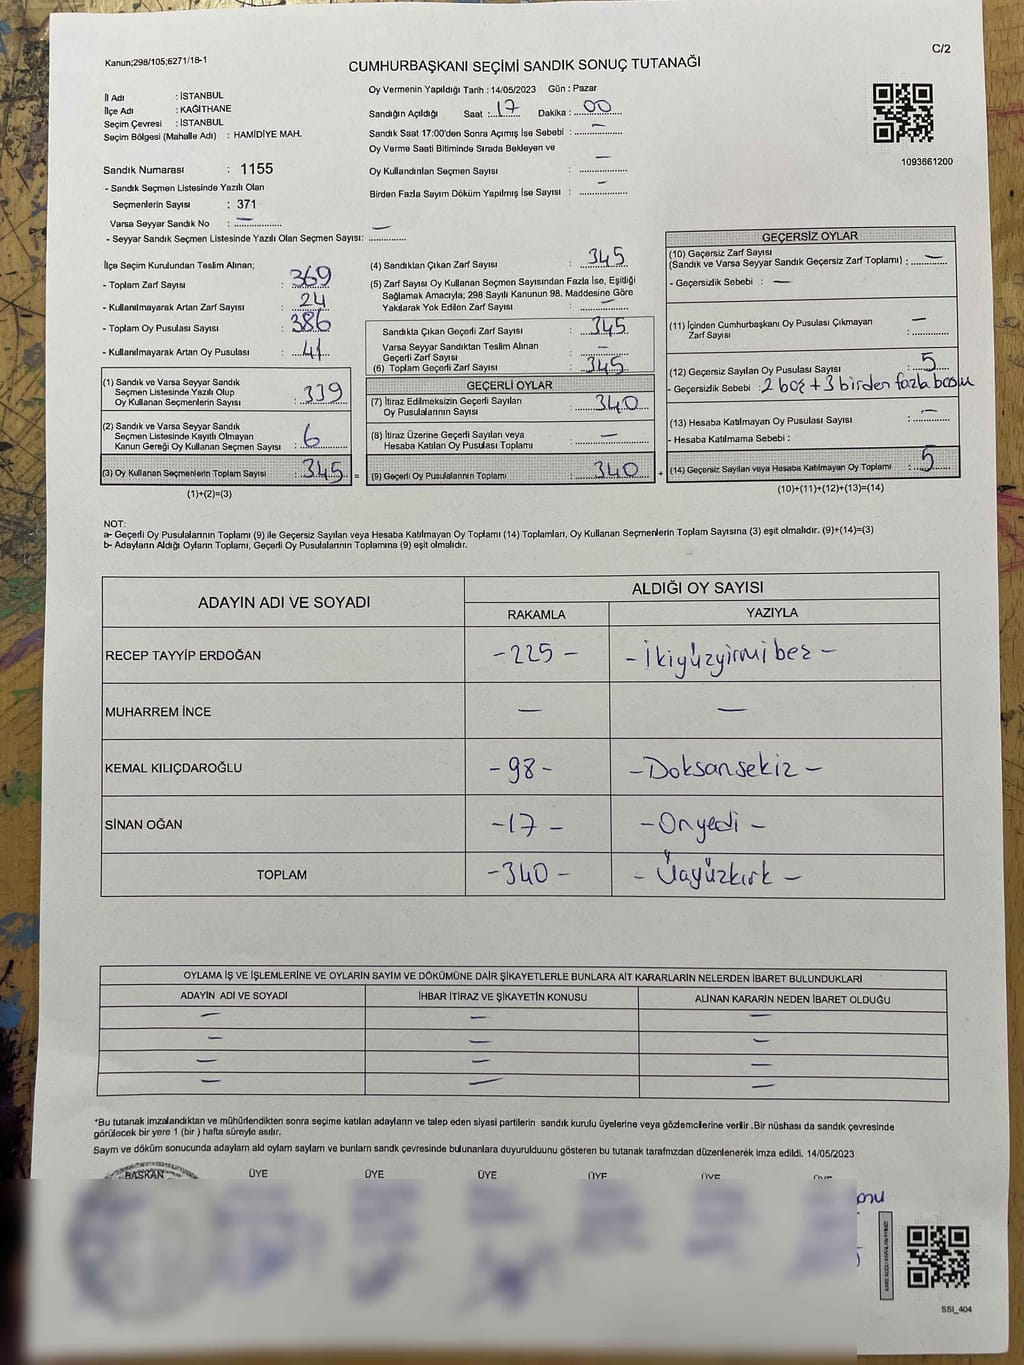 Kanun;298/105;6271/18-1
C/2
CUMHURBAŞKANI SEÇİMİ SANDIK SONUÇ TUTANAĞI
İl Adı : İSTANBUL
İlçe Adı : KAĞITHANE
Seçim Çevresi : İSTANBUL
Seçim Bölgesi (Mahalle Adı) : HAMİDİYE MAH.
Sandık Numarası : 1155
- Sandık Seçmen Listesinde Yazılı Olan
Seçmenlerin Sayısı : 371
Varsa Seyyar Sandık No : —
- Seyyar Sandık Seçmen Listesinde Yazılı Olan Seçmen Sayısı: —
Oy Vermenin Yapıldığı Tarih : 14/05/2023 Gün : Pazar
Sandığın Açıldığı Saat : 17 Dakika : 00
Sandık Saat 17:00'den Sonra Açımış İse Sebebi : —
Oy Verme Saati Bitiminde Sırada Bekleyen ve
Oy Kullandırılan Seçmen Sayısı : —
Birden Fazla Sayım Döküm Yapılmış İse Sayısı : —
1093661200
İlçe Seçim Kurulundan Teslim Alınan;
- Toplam Zarf Sayısı : 369
- Kullanılmayarak Artan Zarf Sayısı : 24
- Toplam Oy Pusulası Sayısı : 386
- Kullanılmayarak Artan Oy Pusulası : 41
(1) Sandık ve Varsa Seyyar Sandık
Seçmen Listesinde Yazılı Olup
Oy Kullanan Seçmenlerin Sayısı : 339
(2) Sandık ve Varsa Seyyar Sandık
Seçmen Listesinde Kayıtlı Olmayan
Kanun Gereği Oy Kullanan Seçmen Sayısı : 6
(3) Oy Kullanan Seçmenlerin Toplam Sayısı : 345 =
(1)+(2)=(3)
(4) Sandıktan Çıkan Zarf Sayısı : 345
(5) Zarf Sayısı Oy Kullanan Seçmen Sayısından Fazla İse, Eşitliği
Sağlamak Amacıyla; 298 Sayılı Kanunun 98. Maddesine Göre
Yakılarak Yok Edilen Zarf Sayısı : —
Sandıkta Çıkan Geçerli Zarf Sayısı : 345
Varsa Seyyar Sandıktan Teslim Alınan
Geçerli Zarf Sayısı : —
(6) Toplam Geçerli Zarf Sayısı : 345
GEÇERLİ OYLAR
(7) İtiraz Edilmeksizin Geçerli Sayılan
Oy Pusulalarının Sayısı : 340
(8) İtiraz Üzerine Geçerli Sayılan veya
Hesaba Katılan Oy Pusulalarının Toplamı : —
(9) Geçerli Oy Pusulalarının Toplamı : 340 +
GEÇERSİZ OYLAR
(10) Geçersiz Zarf Sayısı
(Sandık ve Varsa Seyyar Sandık Geçersiz Zarf Toplamı) : —
- Geçersizlik Sebebi : —
(11) İçinden Cumhurbaşkanı Oy Pusulası Çıkmayan
Zarf Sayısı : —
(12) Geçersiz Sayılan Oy Pusulası Sayısı : 5
- Geçersizlik Sebebi : 2 boş + 3 birden fazla baskı
(13) Hesaba Katılmayan Oy Pusulası Sayısı : —
- Hesaba Katılmama Sebebi :
(14) Geçersiz Sayılan veya Hesaba Katılmayan Oy Toplamı : 5
(10)+(11)+(12)+(13)=(14)
NOT:
a- Geçerli Oy Pusulalarının Toplamı (9) ile Geçersiz Sayılan veya Hesaba Katılmayan Oy Toplamı (14) Toplamları, Oy Kullanan Seçmenlerin Toplam Sayısına (3) eşit olmalıdır. (9)+(14)=(3)
b- Adayların Aldığı Oyların Toplamı, Geçerli Oy Pusulalarının Toplamına (9) eşit olmalıdır.
ADAYIN ADI VE SOYADI
ALDIĞI OY SAYISI
RAKAMLA YAZIYLA
RECEP TAYYİP ERDOĞAN -225- -İkiyüzyirmibeş-
MUHARREM İNCE — —
KEMAL KILIÇDAROĞLU -98- -Doksansekiz-
SİNAN OĞAN -17- -Onyedi-
TOPLAM -340- -Üçyüzkırk-
OYLAMA İŞ VE İŞLEMLERİNE VE OYLARIN SAYIM VE DÖKÜMÜNE DAİR ŞİKAYETLERLE BUNLARA AİT KARARLARIN NELERDEN İBARET BULUNDUKLARI
ADAYIN ADI VE SOYADI İHBAR İTİRAZ VE ŞİKAYETİN KONUSU ALINAN KARARIN NEDEN İBARET OLDUĞU
— — —
— — —
— — —
— — —
*Bu tutanak imzalandıktan ve mühürlendikten sonra seçime katılan adayların ve talep eden siyasi partilerin sandık kurulu üyelerine veya gözlemcilerine verilir .Bir nüshası da sandık çevresinde
görülecek bir yere 1 (bir ) hafta süreyle asılır.
Saym ve döküm sonucunda adayların ald oylarn saylarn ve bunlarn sandk çevresinde bulunanlara duyurulduunu gösteren bu tutanak tarafmzdan düzenlenerek imza edildi. 14/05/2023
BAŞKAN ÜYE ÜYE ÜYE ÜYE ÜYE ÜYE
SSI_404